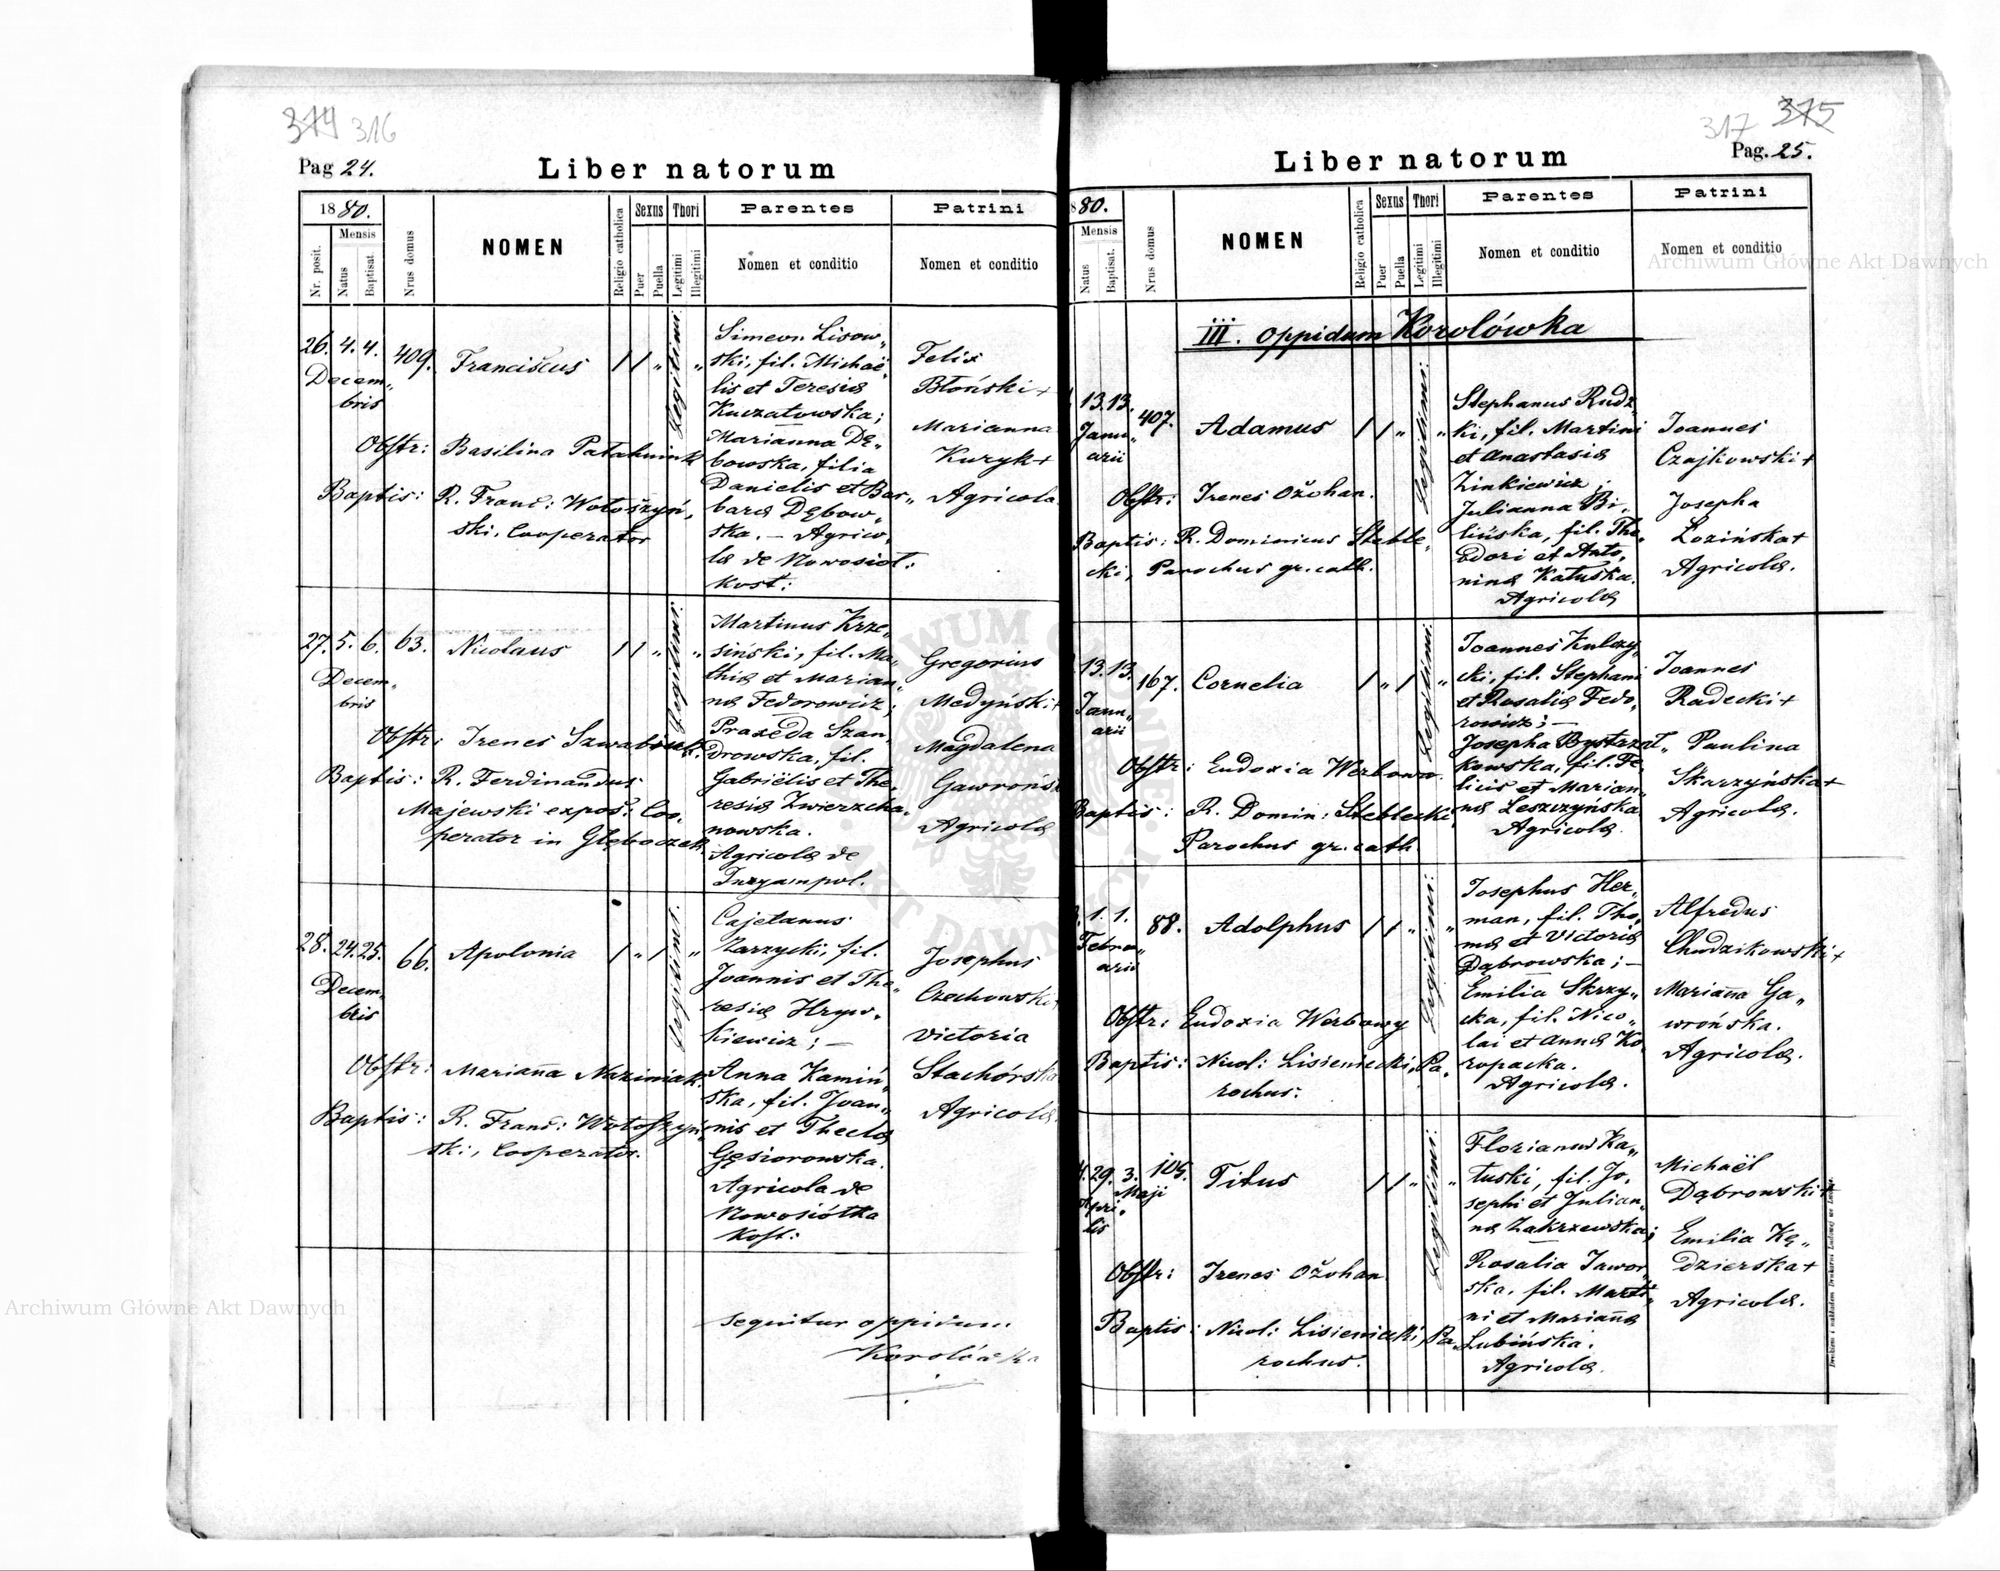 374 316
Pag 24.
Liber natorum
1880.
Mensis
Nr. posit.
Natus
Baptisat.
Nrus domus
NOMEN
Religio catholica
Sexus
Puer
Puella
Thori
Legitimi
Illegitimi
Parentes
Nomen et conditio
Patrini
Nomen et conditio
26. 4. 4. 409. Franciscus / / „ Legitimi „
Decem„
bris
Obstr: Basilina
Baptis: R. Franc: Wołoszyń,
ski, Cooperator
Simeon Lisow„
ski, fil. Michaë„
lis et Teresia
Kuczatowska;
Marianna Dę„
bowska, filia
Danielis et Bar„
bara Dębow„
ska. – Agrico„
la de Nowosiół.
kost:
Felix
Błoński +
Marianna
Kuryk +
Agricola
27. 5. 6. 63. Nicolaus / / „ Legitimi „
Decem„
bris
Obstr: Irenes
Baptis: R. Ferdinandus
Majewski expos: Coo„
perator in Głęboczek
Martinus Krze„
siński, fil. Ma„
thia et Marian„
na Fedorowicz;
Praxeda Szan„
drowska, fil.
Gabriëlis et The„
resia Zwierzcha„
nowska.
Agricola de
Juryampol.
Gregorius
Medyński +
Magdalena
Gawrońs
Agricola
28. 24. 25. 66. Apolonia / „ / Legitimi „
Decem„
bris
Obstr: Marianna
Baptis: R. Franc: Wołoszyń„
ski, Cooperator.
Cajetanus
Zarzycki, fil.
Joannis et The„
resia Hryw„
kiewicz; –
Anna Kamiń„
ska, fil. Joan„
nis et Thecla
Gęsiorowska.
Agricola de
Nowosiółka
Kost:
Josephus
Czechowski +
Victoria
Stachórska
Agricola
sequitur oppidum
Korolówka
317 375
Pag. 25.
Liber natorum
80.
Mensis
Natus
Baptisat.
Nrus domus
NOMEN
Religio catholica
Sexus
Puer
Puella
Thori
Legitimi
Illegitimi
Parentes
Nomen et conditio
Patrini
Nomen et conditio
III. Oppidum Korolówka
13. 13. 407. Adamus / / „ Legitimi „
Janu„
arii
Obstr: Irenes Ožohan.
Baptis: R. Dominicus Steble„
cki, Parochus gr. cath.
Stephanus Rudz„
ki, fil. Martini
et Anastasia
Zinkiewicz;
Julianna Bi„
lińska, fil. The„
odori et Anto„
nina Katuska.
Agricola
Joannes
Czajkowski +
Josepha
Łozińska +
Agricola.
13. 13. 167. Cornelia / „ / Legitimi „
Janu„
arii
Obstr: Eudoxia Werbowa.
Baptis: R. Domin: Steblecki
Parochus gr. cath.
Joannes Kulczy„
cki, fil. Stephani
et Rosalia Fedo„
rowicz; –
Josepha Bystrzał„
kowska, fil. Fe„
licis et Marian„
na Leszczyńska
Agricola.
Joannes
Radecki +
Paulina
Skarzyńska +
Agricola.
1. 1. 88. Adolphus / / „ Legitimi „
Febru„
arii
Obstr: Eudoxia Werbowy
Baptis: Nicol: Lisieniecki, Pa„
rochus.
Josephus Her„
man, fil. Tho„
ma et Victoria
Dąbrowska; –
Emilia Skrzy„
cka, fil. Nico„
lai et Anna Ko„
ropacka.
Agricola.
Alfredus
Chudzikowski +
Marianna Ga„
wrońska.
Agricola.
4. 29. 3. 105. Titus / / „ Legitimi „
Maji
Apri„
lis
Obstr: Irenes Ožohan
Baptis: Nicol: Lisieniecki, Pa„
rochus.
Florianus Ka„
tuski, fil. Jo„
sephi et Julian„
na Zakrzewska;
Rosalia Jawor„
ska, fil. Marti„
ni et Marianna
Lubińska.
Agricola.
Michaël
Dąbrowski +
Emilia Kę„
dzierska +
Agricola.
Archiwum Główne Akt Dawnych
Archiwum Główne Akt Dawnych
ARCHIWUM GŁÓWNE AKT DAWNYCH